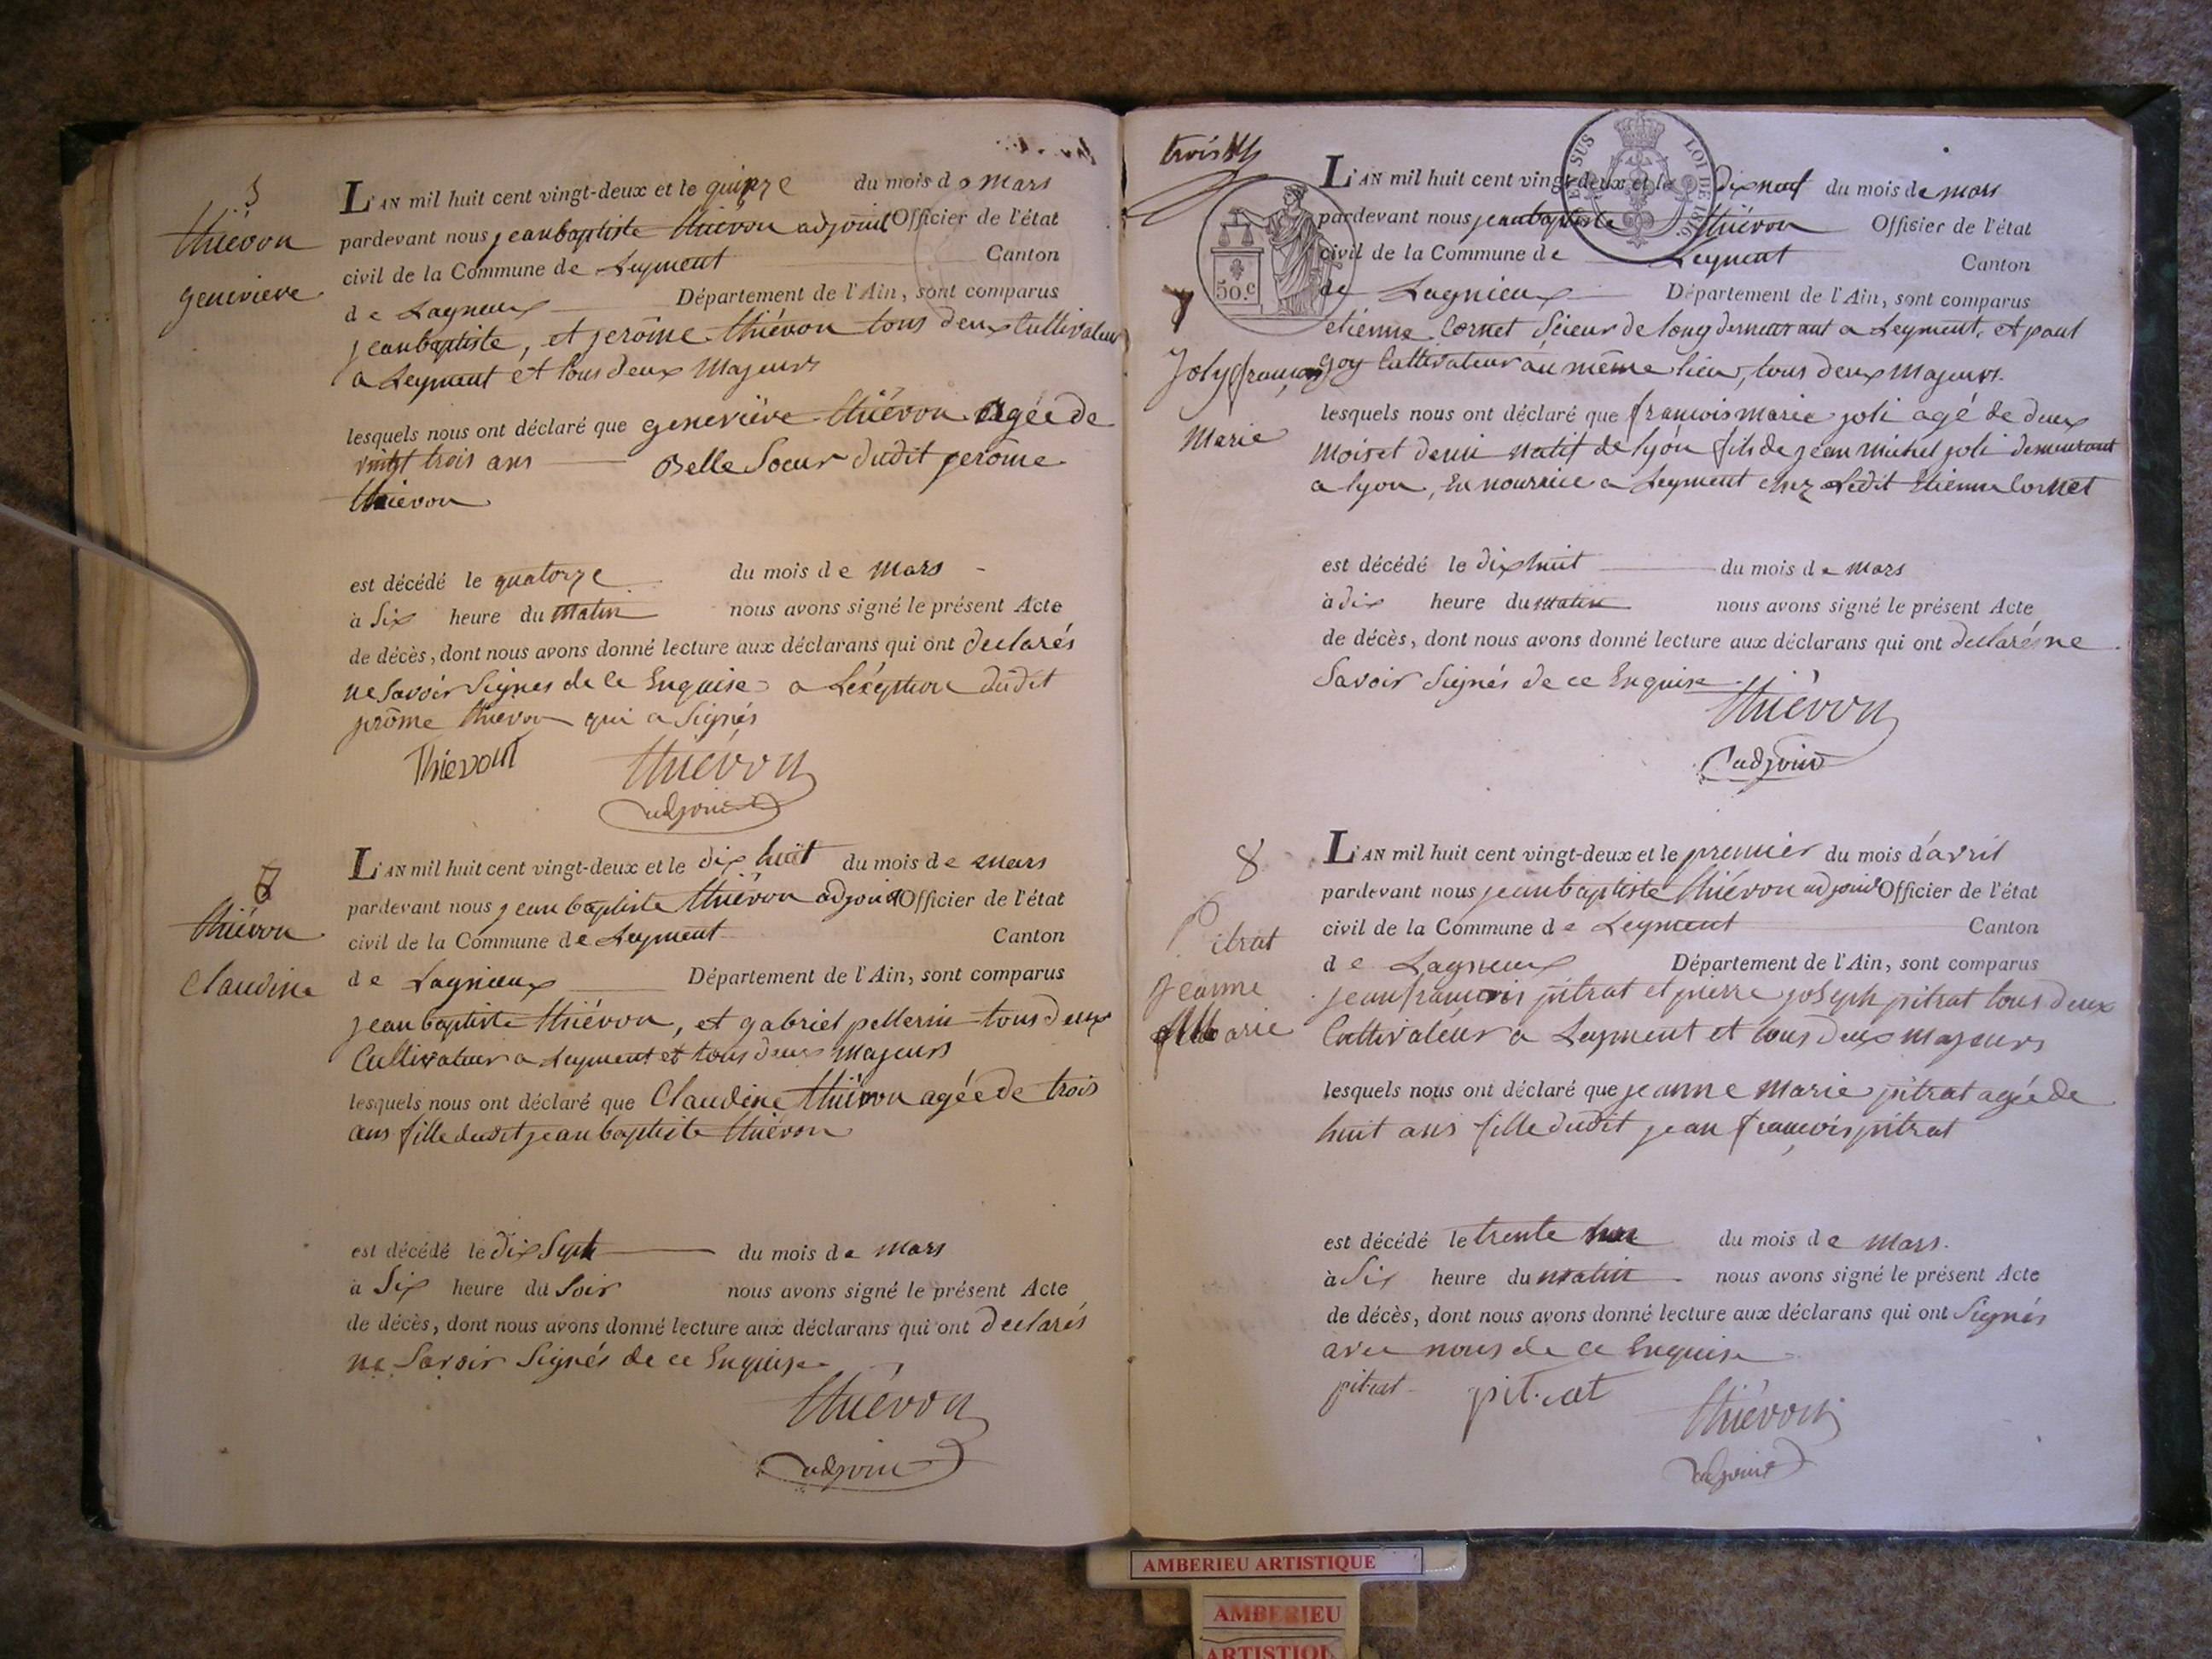 5
thiévon
genevieve
L'AN mil huit cent vingt-deux et le quinze du mois de mars
pardevant nous jeanbaptiste thiévon adjoint Officier de l'état
civil de la Commune de Leyment Canton
de Lagnieux Département de l'Ain, sont comparus
jeanbaptiste, et jerôme thiévon tous deux Cultivateur
a Leyment et tous deux Majeurs
lesquels nous ont déclaré que geneviève thiévon agée de
vingt trois ans Belle Soeur dudit jerôme
thiévon
est décédé le quatorze du mois de mars
à Six heure du matin nous avons signé le présent Acte
de décès, dont nous avons donné lecture aux déclarans qui ont declarés
ne Savoir Signes de ce Enquise a Lexéption dudit
jrôme thievon qui a Signés
Thievont thiévon
adjoint
6
thiévon
Claudine
L'AN mil huit cent vingt-deux et le dix huit du mois de mars
pardevant nous jeanbaptiste thiévon adjoint Officier de l'état
civil de la Commune de Leyment Canton
de Lagnieux Département de l'Ain, sont comparus
jeanbaptiste thiévon, et gabriel pellerin tous deux
Cultivateur a Leyment et tous deux majeurs
lesquels nous ont déclaré que Claudine thiévon agée de trois
ans fille dudit jeanbaptiste thiévon
est décédé le dix Sept du mois de mars
à Six heure du Soir nous avons signé le présent Acte
de décès, dont nous avons donné lecture aux déclarans qui ont declarés
ne Savoir Signés de ce Enquise
thiévon
adjoint
trois
SUS LOI DE 1816
50.c
7
Joly françois
Marie
L'AN mil huit cent vingt-deux et le dix neuf du mois de mars
pardevant nous jeanbaptiste thiévon Officier de l'état
civil de la Commune de Leyment Canton
de Lagnieux Département de l'Ain, sont comparus
etienne Cornet Scieur de long demeurant a Leyment, et paul
goy Cultivateur au même lieu, tous deux majeurs.
lesquels nous ont déclaré que francois marie joli agé de deux
mois et demi natif de lyon fils de jean michel joli demeurant
a lyon, En nourrice a Leyment chez Ledit Etienne Cornet
est décédé le dix huit du mois de mars
à dix heure du matin nous avons signé le présent Acte
de décès, dont nous avons donné lecture aux déclarans qui ont declarés ne
Savoir Signés de ce Enquise
thiévon
adjoint
8
Pitrat
Jeanne
Marie
L'AN mil huit cent vingt-deux et le premier du mois d'avril
pardevant nous jeanbaptiste thiévon adjoint Officier de l'état
civil de la Commune de Leyment Canton
de Lagnieux Département de l'Ain, sont comparus
jean françois pitrat et pierre joseph pitrat tous deux
Cultivateur a Leyment et tous deux majeurs
lesquels nous ont déclaré que jeanne marie pitrat agée de
huit ans fille dudit jean françois pitrat
est décédé le trente du mois de mars.
à Six heure du matin nous avons signé le présent Acte
de décès, dont nous avons donné lecture aux déclarans qui ont Signés
avec nous de ce Enquise
pitrat pitrat thiévon
adjoint
AMBERIEU ARTISTIQUE
AMBERIEU
ARTISTIQU